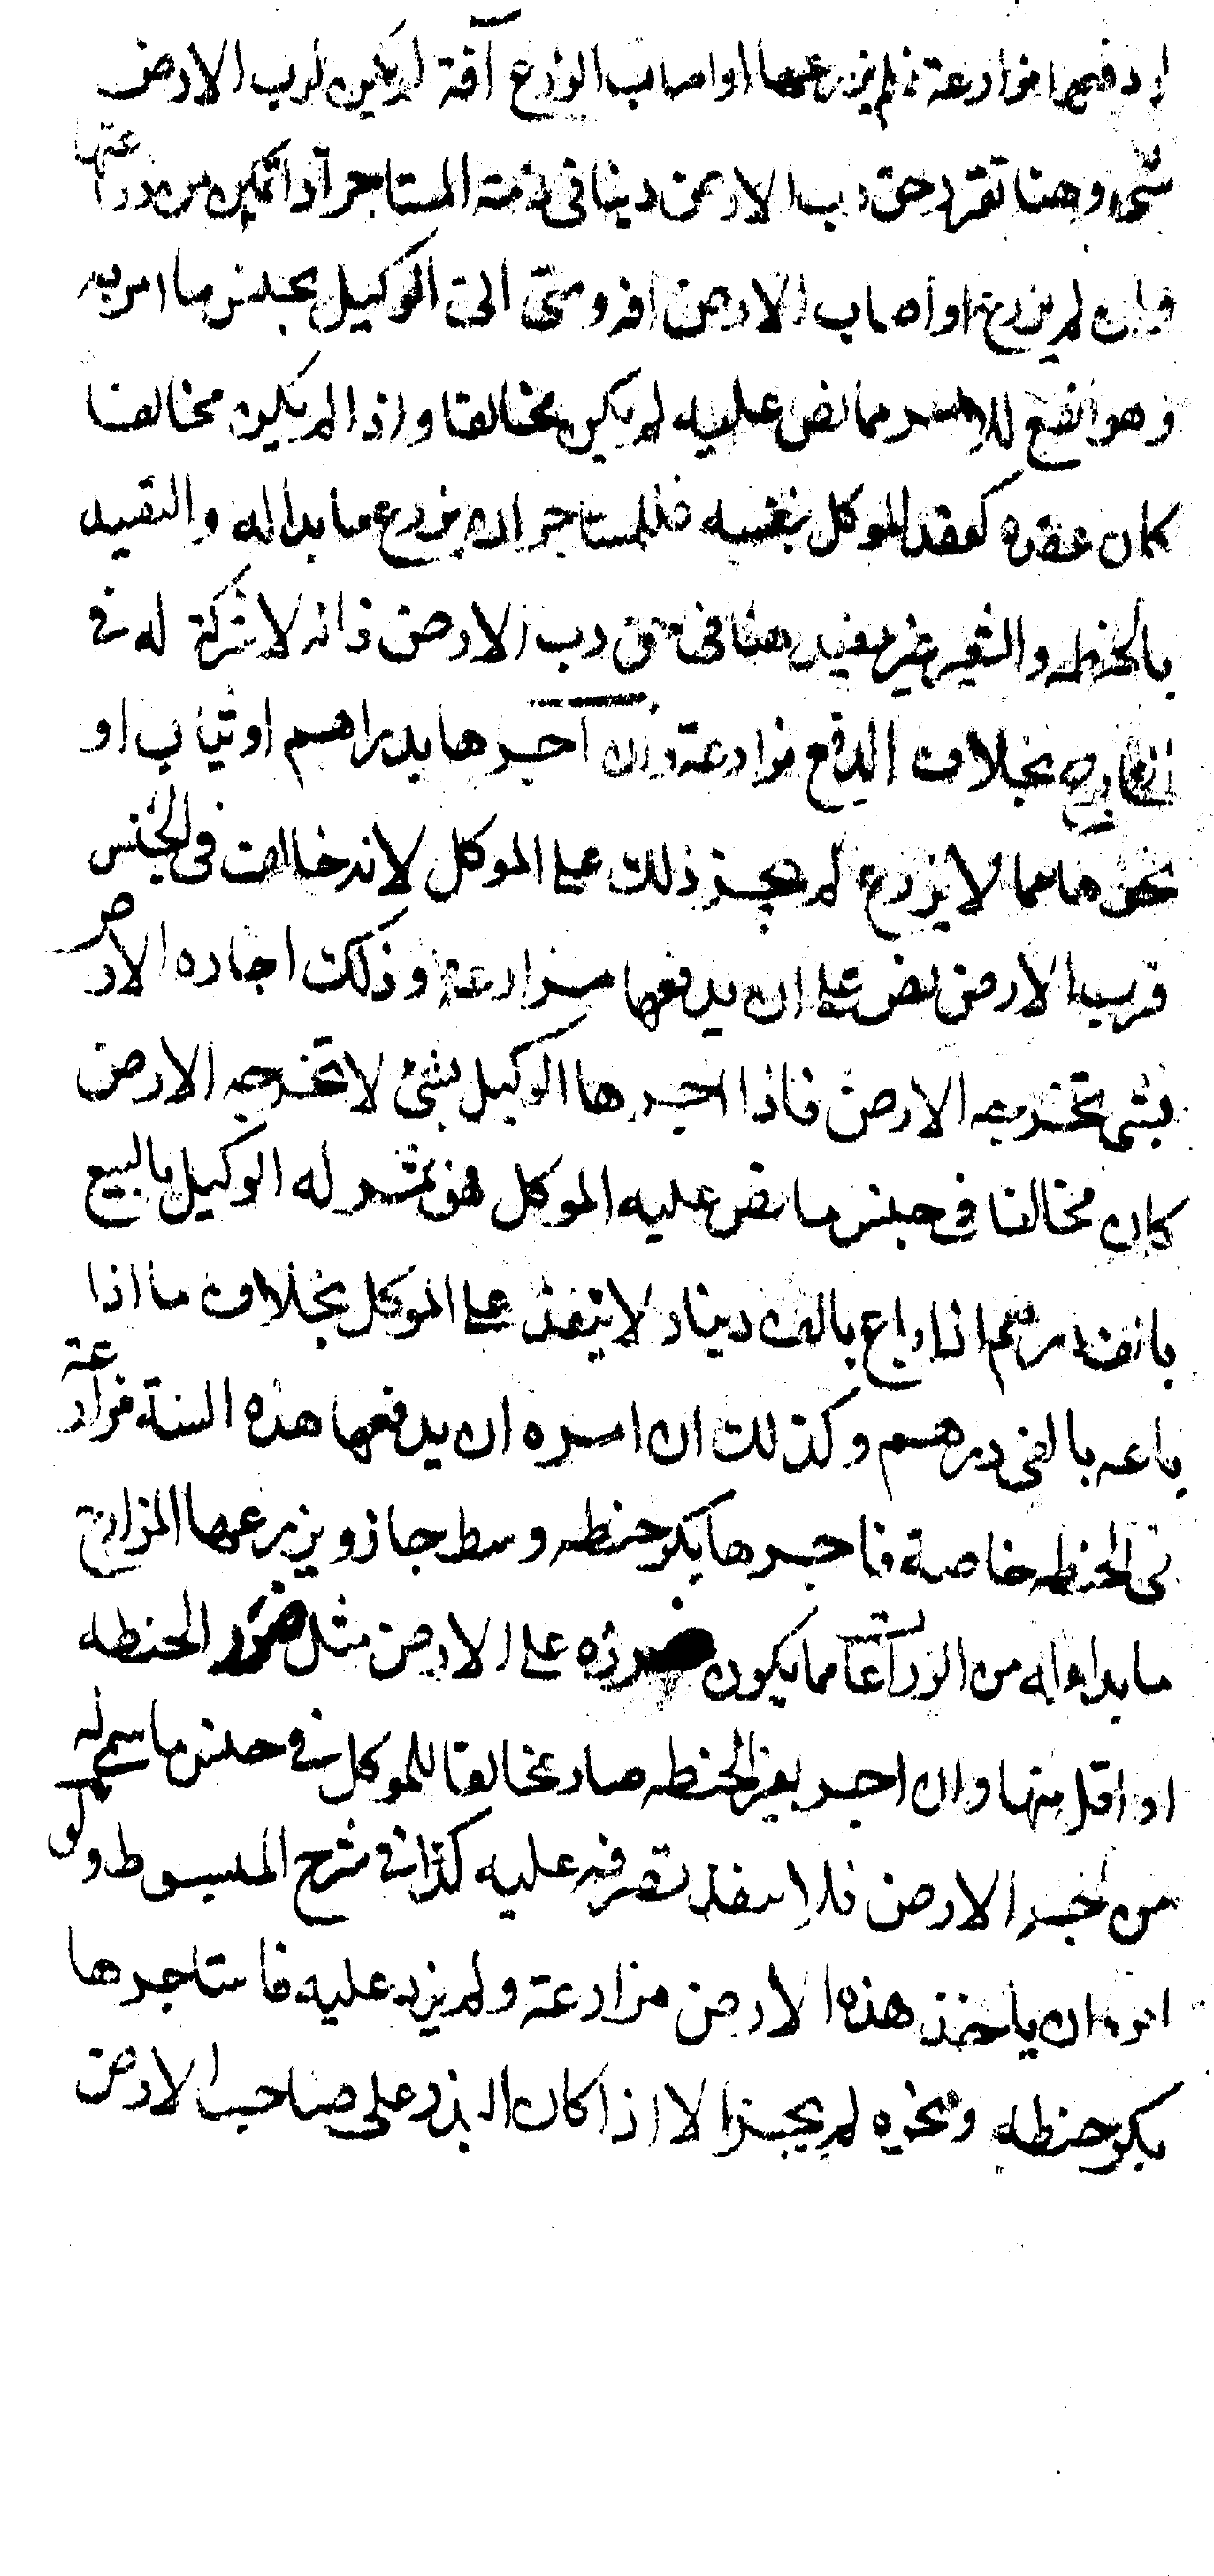 لو دفعها مزارعة فلم يزرعها او اصاب الزرع آفة لم يكن لرب الارض
شئ وهنا تقرر حق رب الارض دينا فى ذمة المستاجر اذا تمكن من زراعتها
وان لم يزرع او اصاب الارض افه ومتى اتى الوكيل بجنس ما امر به
وهو انفع للامر مما نص عليه لم يكن مخالفا واذا لم يكن مخالفا
كان عقده كعقد الموكل بنفسه فللمستاجر ان يزرع ما بدا له والتقييد
بالحنطه والشعير غير مفيد هنا فى حق رب الارض فانه لا شركة له فى
الخارج بخلاف الدفع مزارعة وان آجرها بدراهم او ثياب او
نحوها مما لا يزرع لم يجز ذلك على الموكل لانه خالف فى الجنس
فرب الارض نص على ان يدفعها مزارعة وذلك اجاره الارض
بشى تخرجه الارض فاذا اجرها الوكيل بشئ لا تخرجه الارض
كان مخالفا فى جنس ما نص عليه الموكل فهو بمنزله الوكيل بالبيع
بالف درهم اذا باع بالف دينار لا ينفذ على الموكل بخلاف ما اذا
باعه بالفى درهم وكذلك ان امره ان يدفعها هذه السنة مزارعة
فى الحنطه خاصة فاجرها بكر حنطه وسط جاز ويزرعها المزارع
ما بدا له من الزراعات مما يكون ضرره على الارض مثل ضرر الحنطه
او اقل منها وان اجر بغير الحنطه صار مخالفا للموكل فى جنس ما سمى له
من اجر الارض فلا ينفذ تصرفه عليه كذا فى شرح المبسوط ولو
امره ان ياخذ هذه الارض مزارعة ولم يزد عليه فاستاجرها
بكر حنطه ونحوه لم يجز الا اذا كان البذر على صاحب الارض